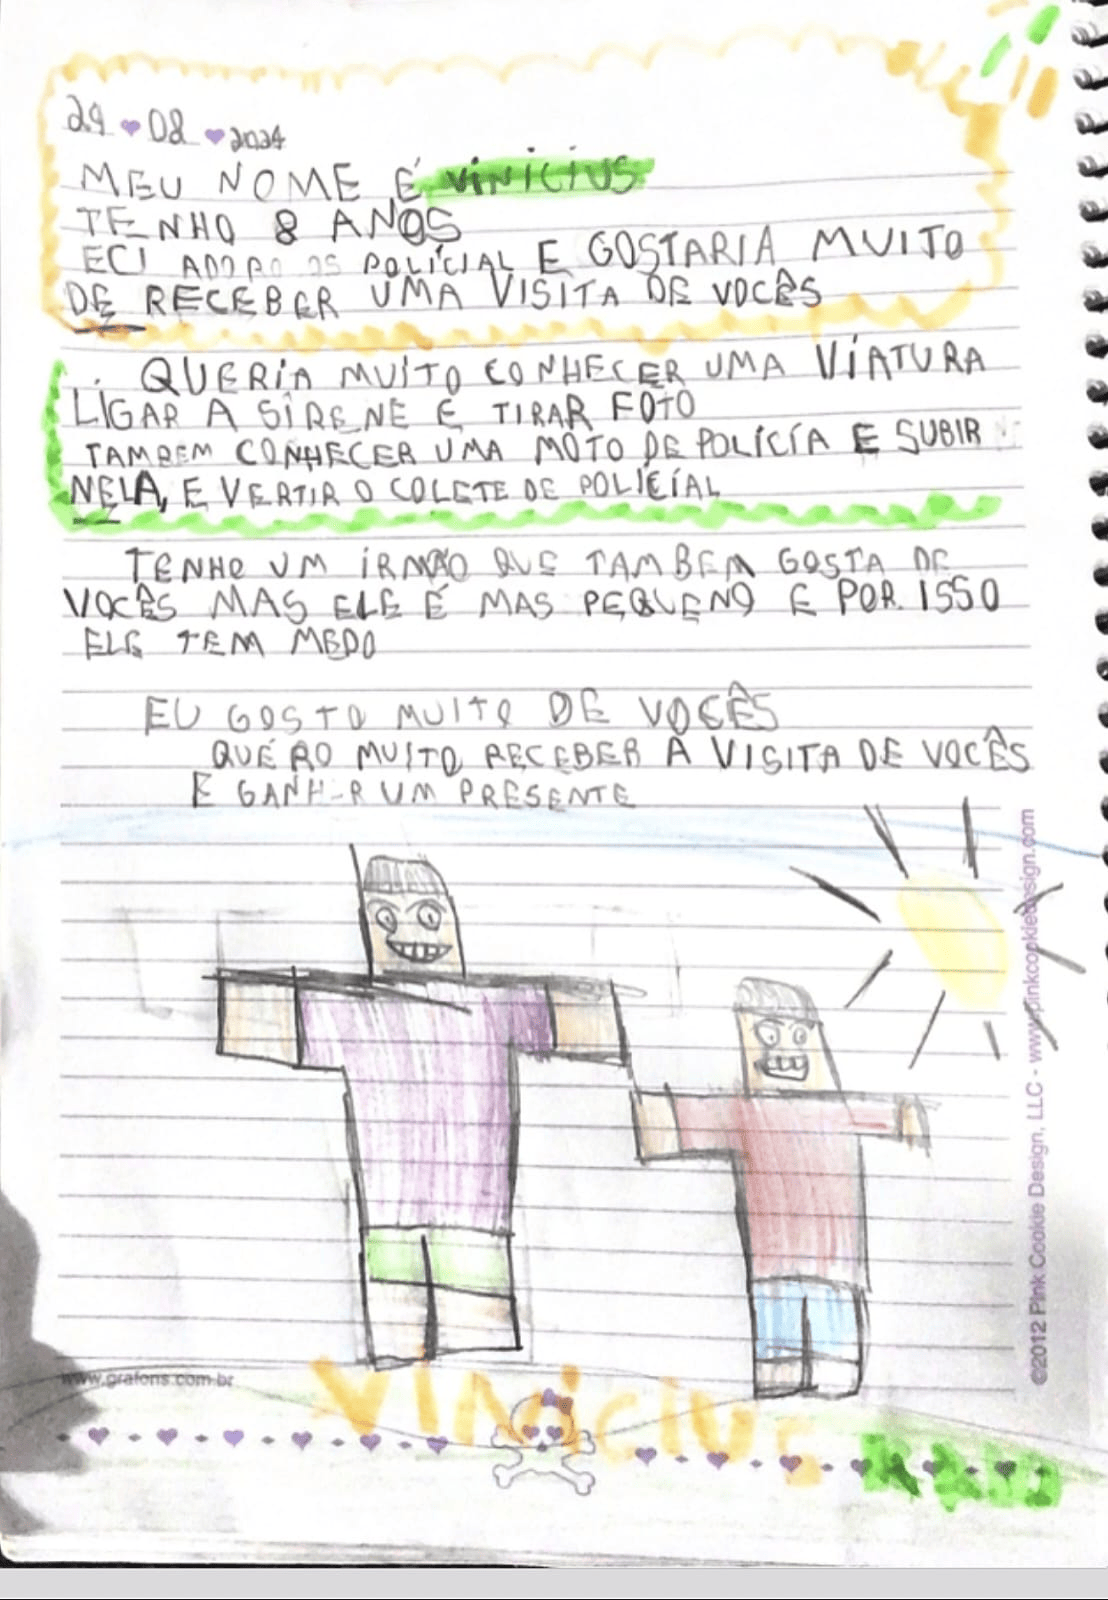 29 08 2024
MEU NOME É VINICIUS
TENHO 8 ANOS
ECI ADORO OS POLICIAL E GOSTARIA MUITO
DE RECEBER UMA VISITA DE VOCÊS
QUERIA MUITO CONHECER UMA VIATURA
LIGAR A SIRENE E TIRAR FOTO
TAMBEM CONHECER UMA MOTO DE POLÍCIA E SUBIR
NELA, E VERTIR O COLETE DE POLICIAL
TENHO UM IRMÃO QUE TAMBEM GOSTA DE
VOCÊS MAS ELE É MAS PEQUENO E POR ISSO
ELE TEM MEDO
EU GOSTO MUITO DE VOCÊS
QUERO MUITO RECEBER A VISITA DE VOCÊS
E GANHAR UM PRESENTE
©2012 Pink Cookie Design, LLC - www.pinkcookiedesign.com
www.grafons.com.br
VINICIUS